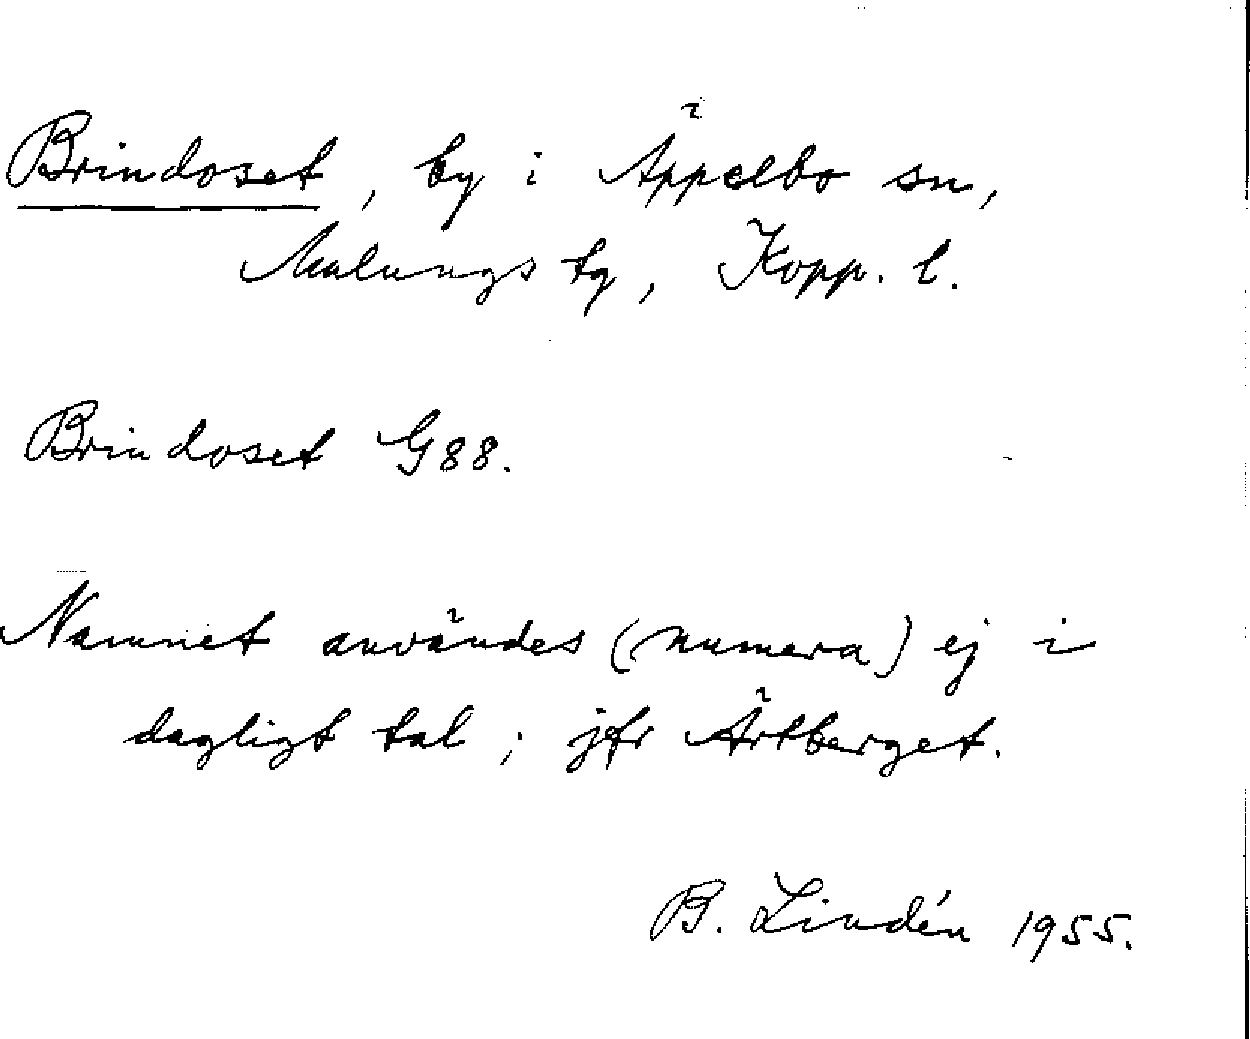 Brindoset, by i Äppelbo sn,
Malungs tg, Kopp. l.
Brindoset G88.
Namnet användes (numera) ej i
dagligt tal; jfr Ärtberget.
B. Lindén 1955.